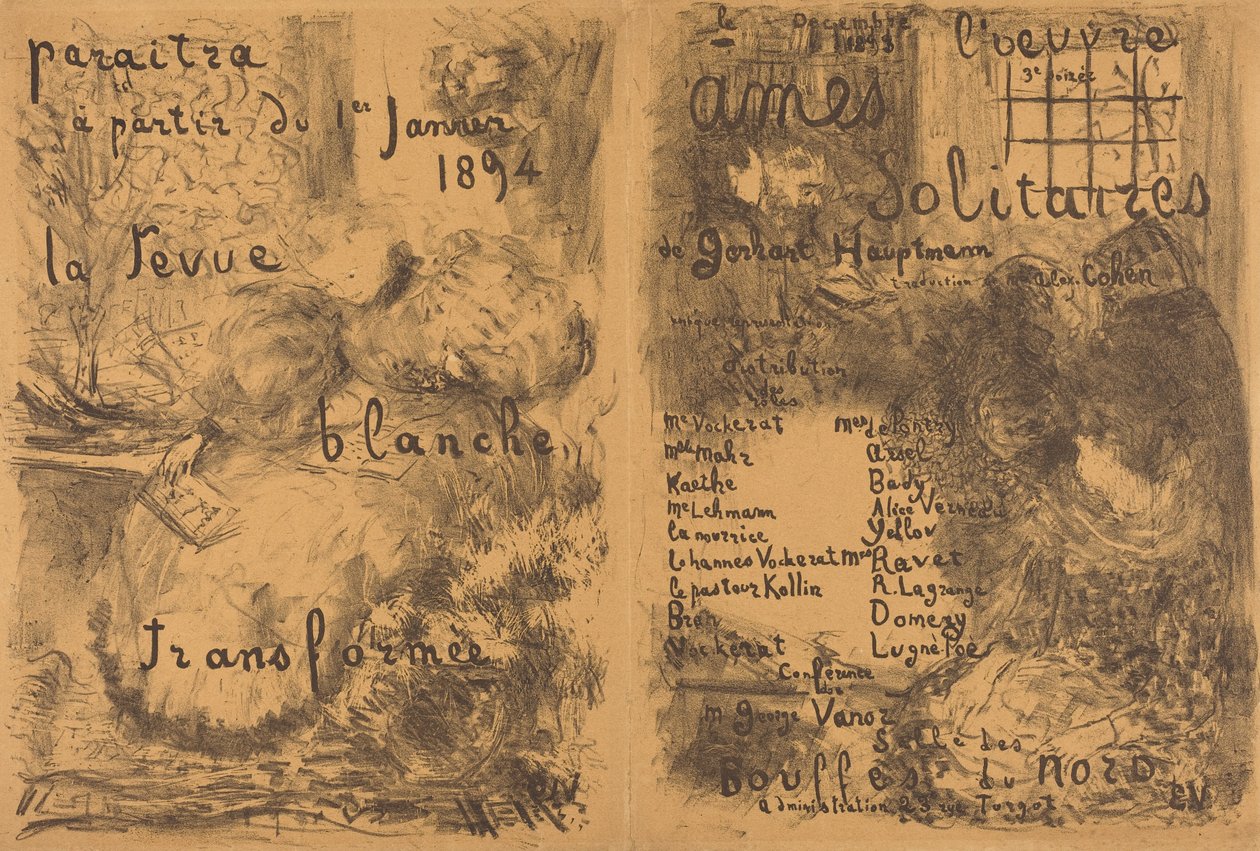 paraitra
à partir du 1er Janvier
1894
la revue
blanche
transformée
EV
le Décembre
1893
l'oeuvre
3e soirée
ames
Solitaires
de Gerhart Hauptmann
traduction de mr alex. Cohen
unique représentation
distribution
des
rôles
Me Vockerat Mmes de Pontry
Melle Mahr Arsel
Kaethe Bady
Me Lehmann Alice Verneau
la nourrice Yellov
Iohannes Vockerat Mrs Ravet
le pasteur Kollin R. Lagrange
Bran Domery
Vockerat Lugné Poë
Conférence
de
m george Vanor
Salle des
Bouffes du Nord
administration 23 rue Turgot
EV